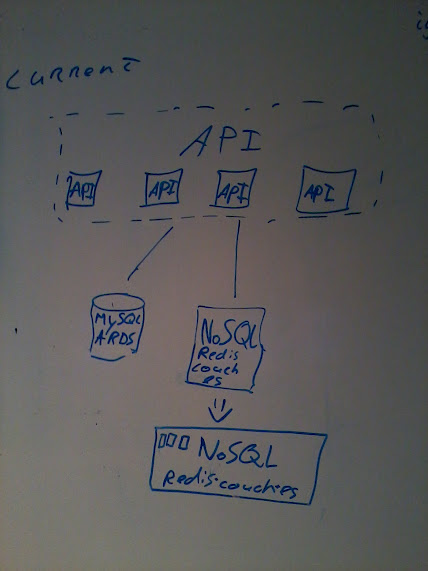 Current
API
API API API API
MySQL
ARDS
NoSQL
Redis
couch
es
NoSQL
Redis.couch.es